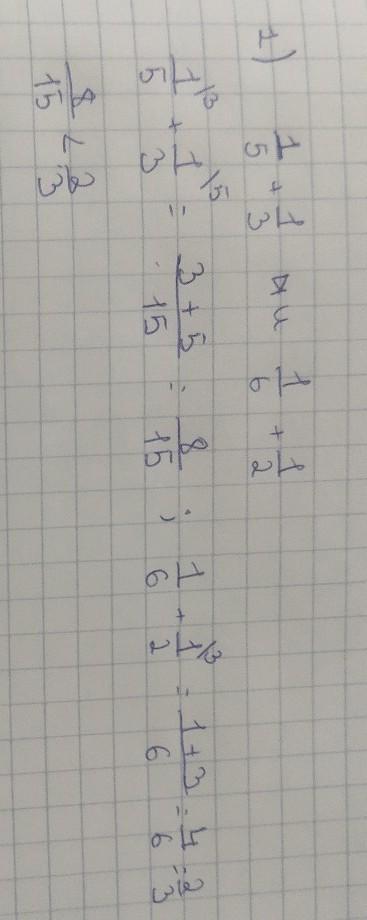 1) 1/5 + 1/3 и 1/6 + 1/2
1/5 /3 + 1/3 /5 = (3+5)/15 = 8/15 ; 1/6 + 1/2 /3 = (1+3)/6 = 4/6 = 2/3
8/15 < 2/3